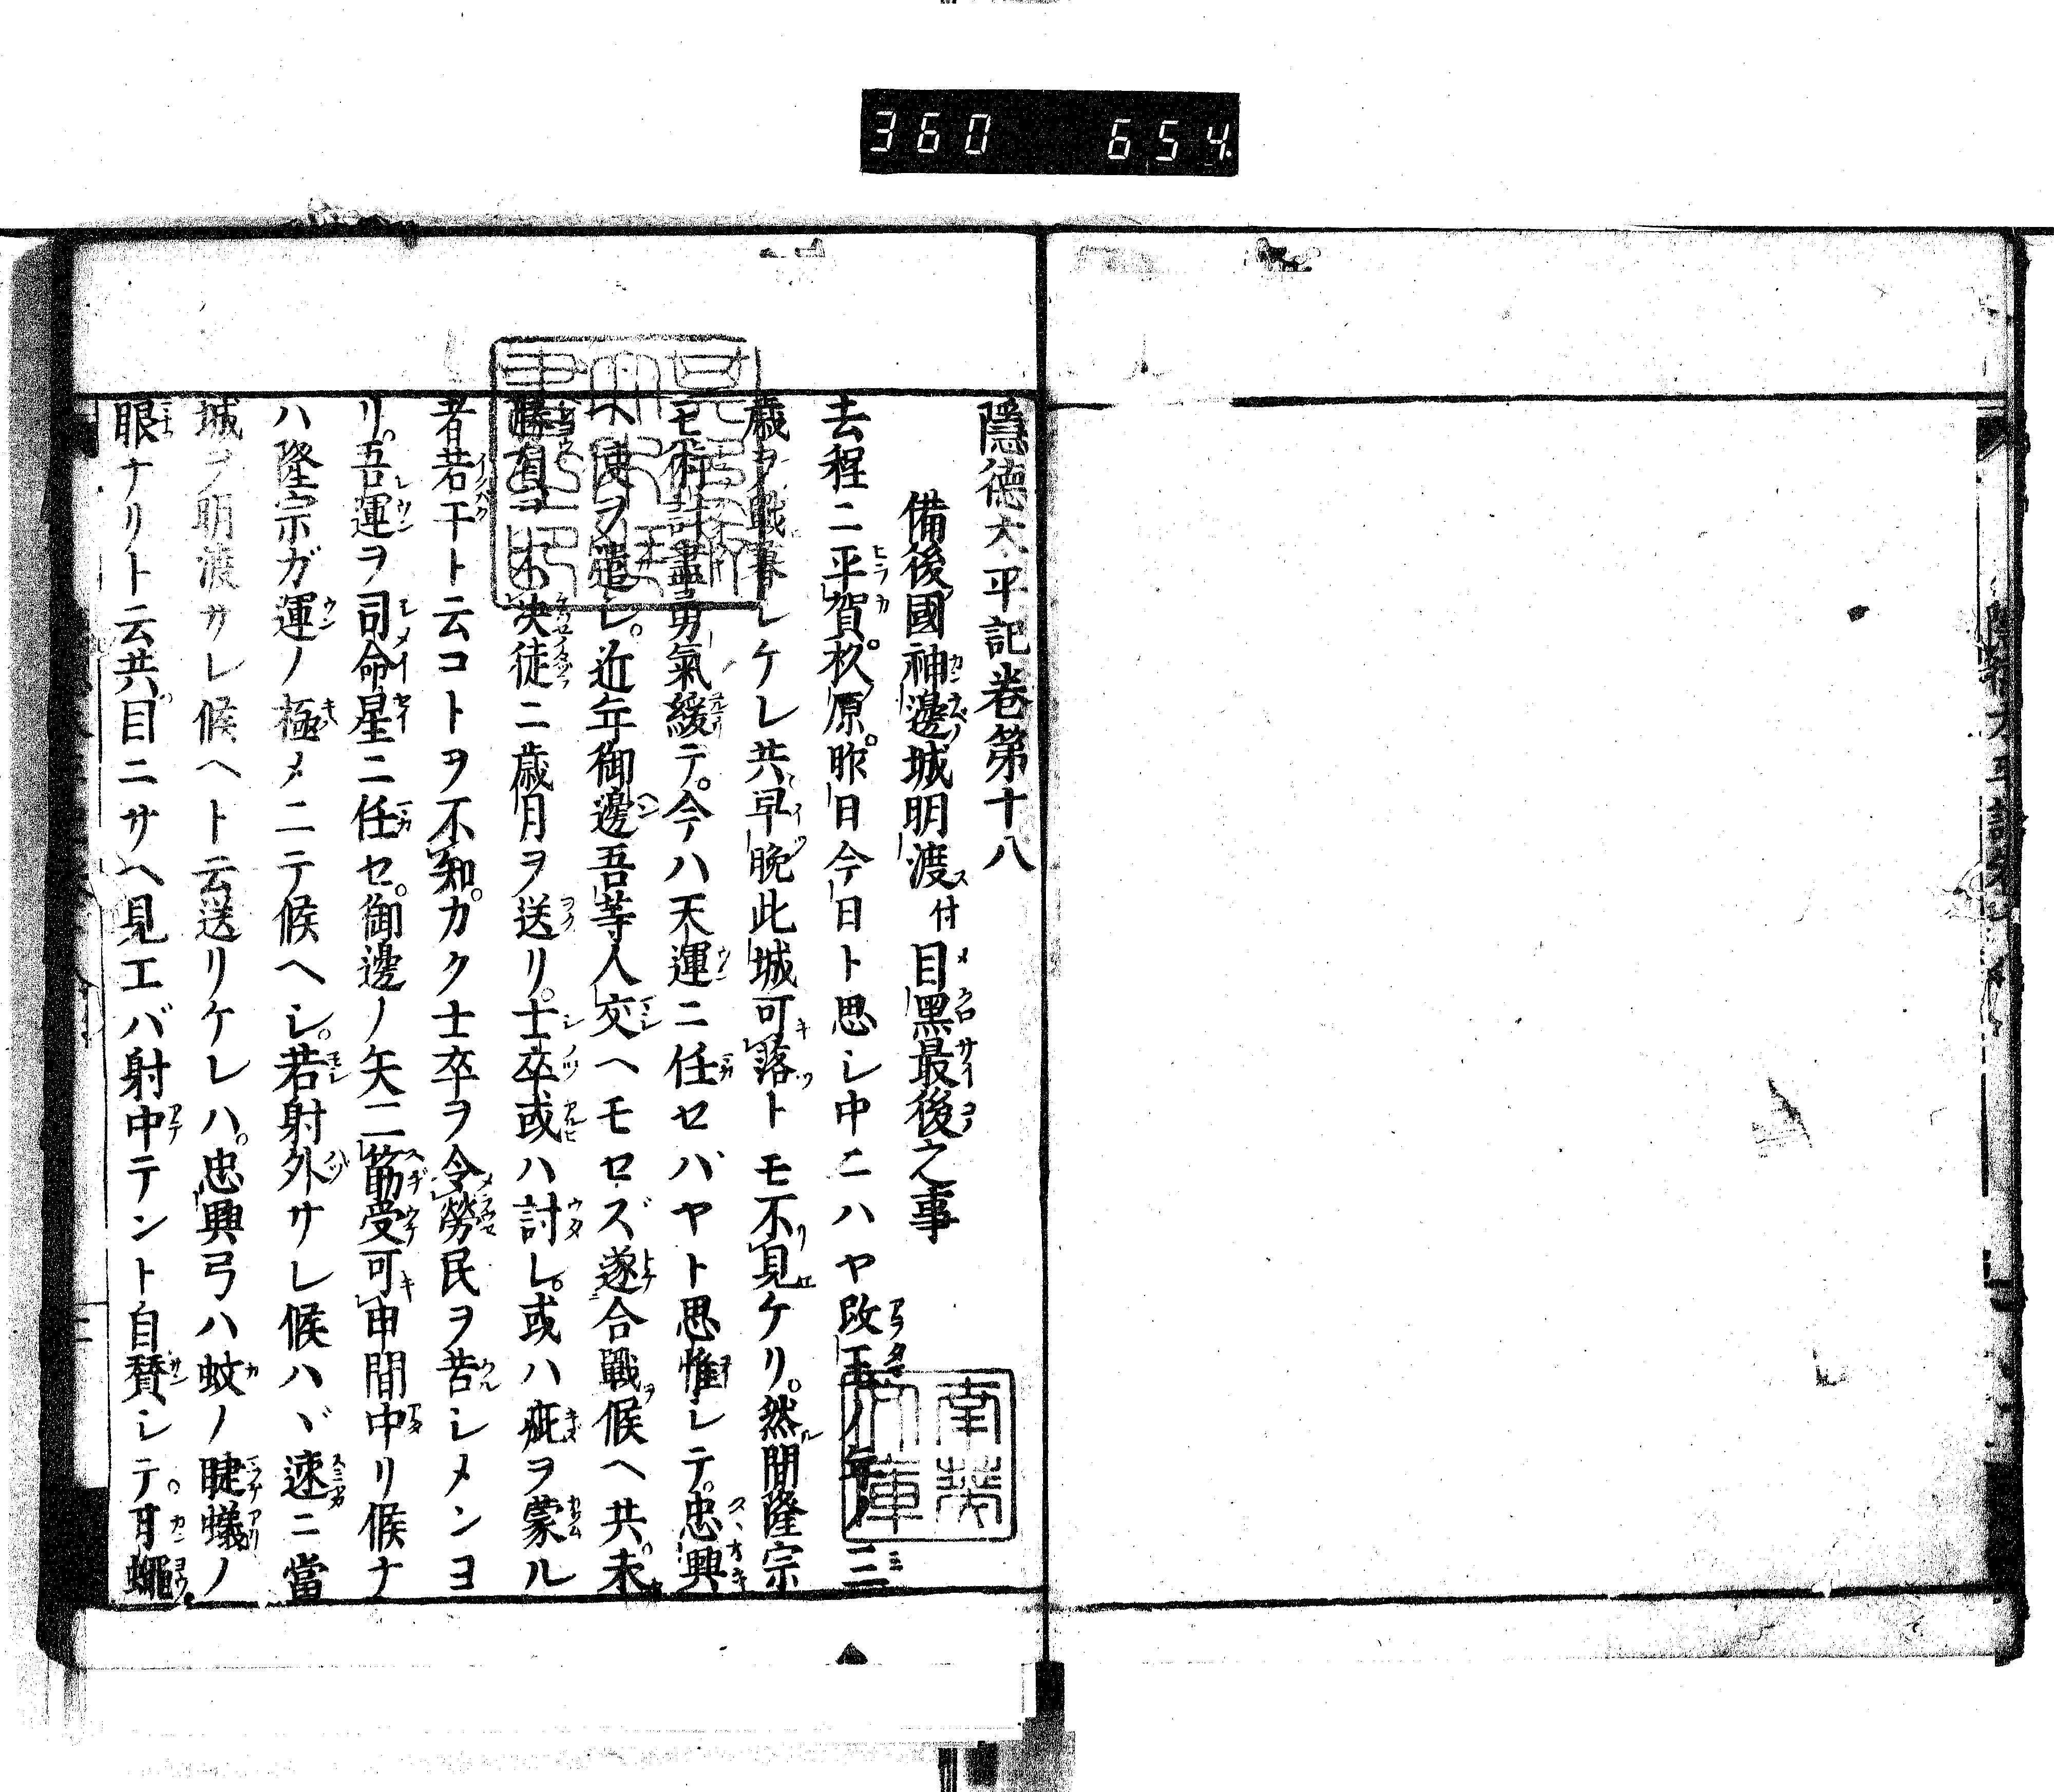 360 654
隱德太平記卷第十八
備後國神邊城明渡付目黑最後之事
去程ニ平賀。杦原。昨日今日ト思シ中ニハヤ改玉ノ年ノ三
歳ヲ戰暮シケレ共早晩此城可落トモ不見ケリ。然間隆宗
モ術計盡勇氣緩テ。今ハ天運ニ任セバヤト思惟シテ。忠興
ヘ使ヲ遣シ。近年御邊吾等人交ヘモセズ遂合戰候ヘ共。未
勝負ヲ不决徒ニ歳月ヲ送リ。士卒或ハ討レ。或ハ疵ヲ蒙ル
者若干ト云コトヲ不知。カク士卒ヲ令勞民ヲ苦シメンヨ
リ。吾運ヲ司命星ニ任セ。御邊ノ矢二筋受可申間中リ候ナ
ハ隆宗ガ運ノ極メニテ候ヘシ。若射外サレ候ハヾ速ニ當
城ヲ明渡サレ候ヘト云送リケレハ。忠興弓ハ蚊ノ睫蟻ノ
眼ナリト云共目ニサヘ見エバ射中テント自賛シテ。甘蠅。